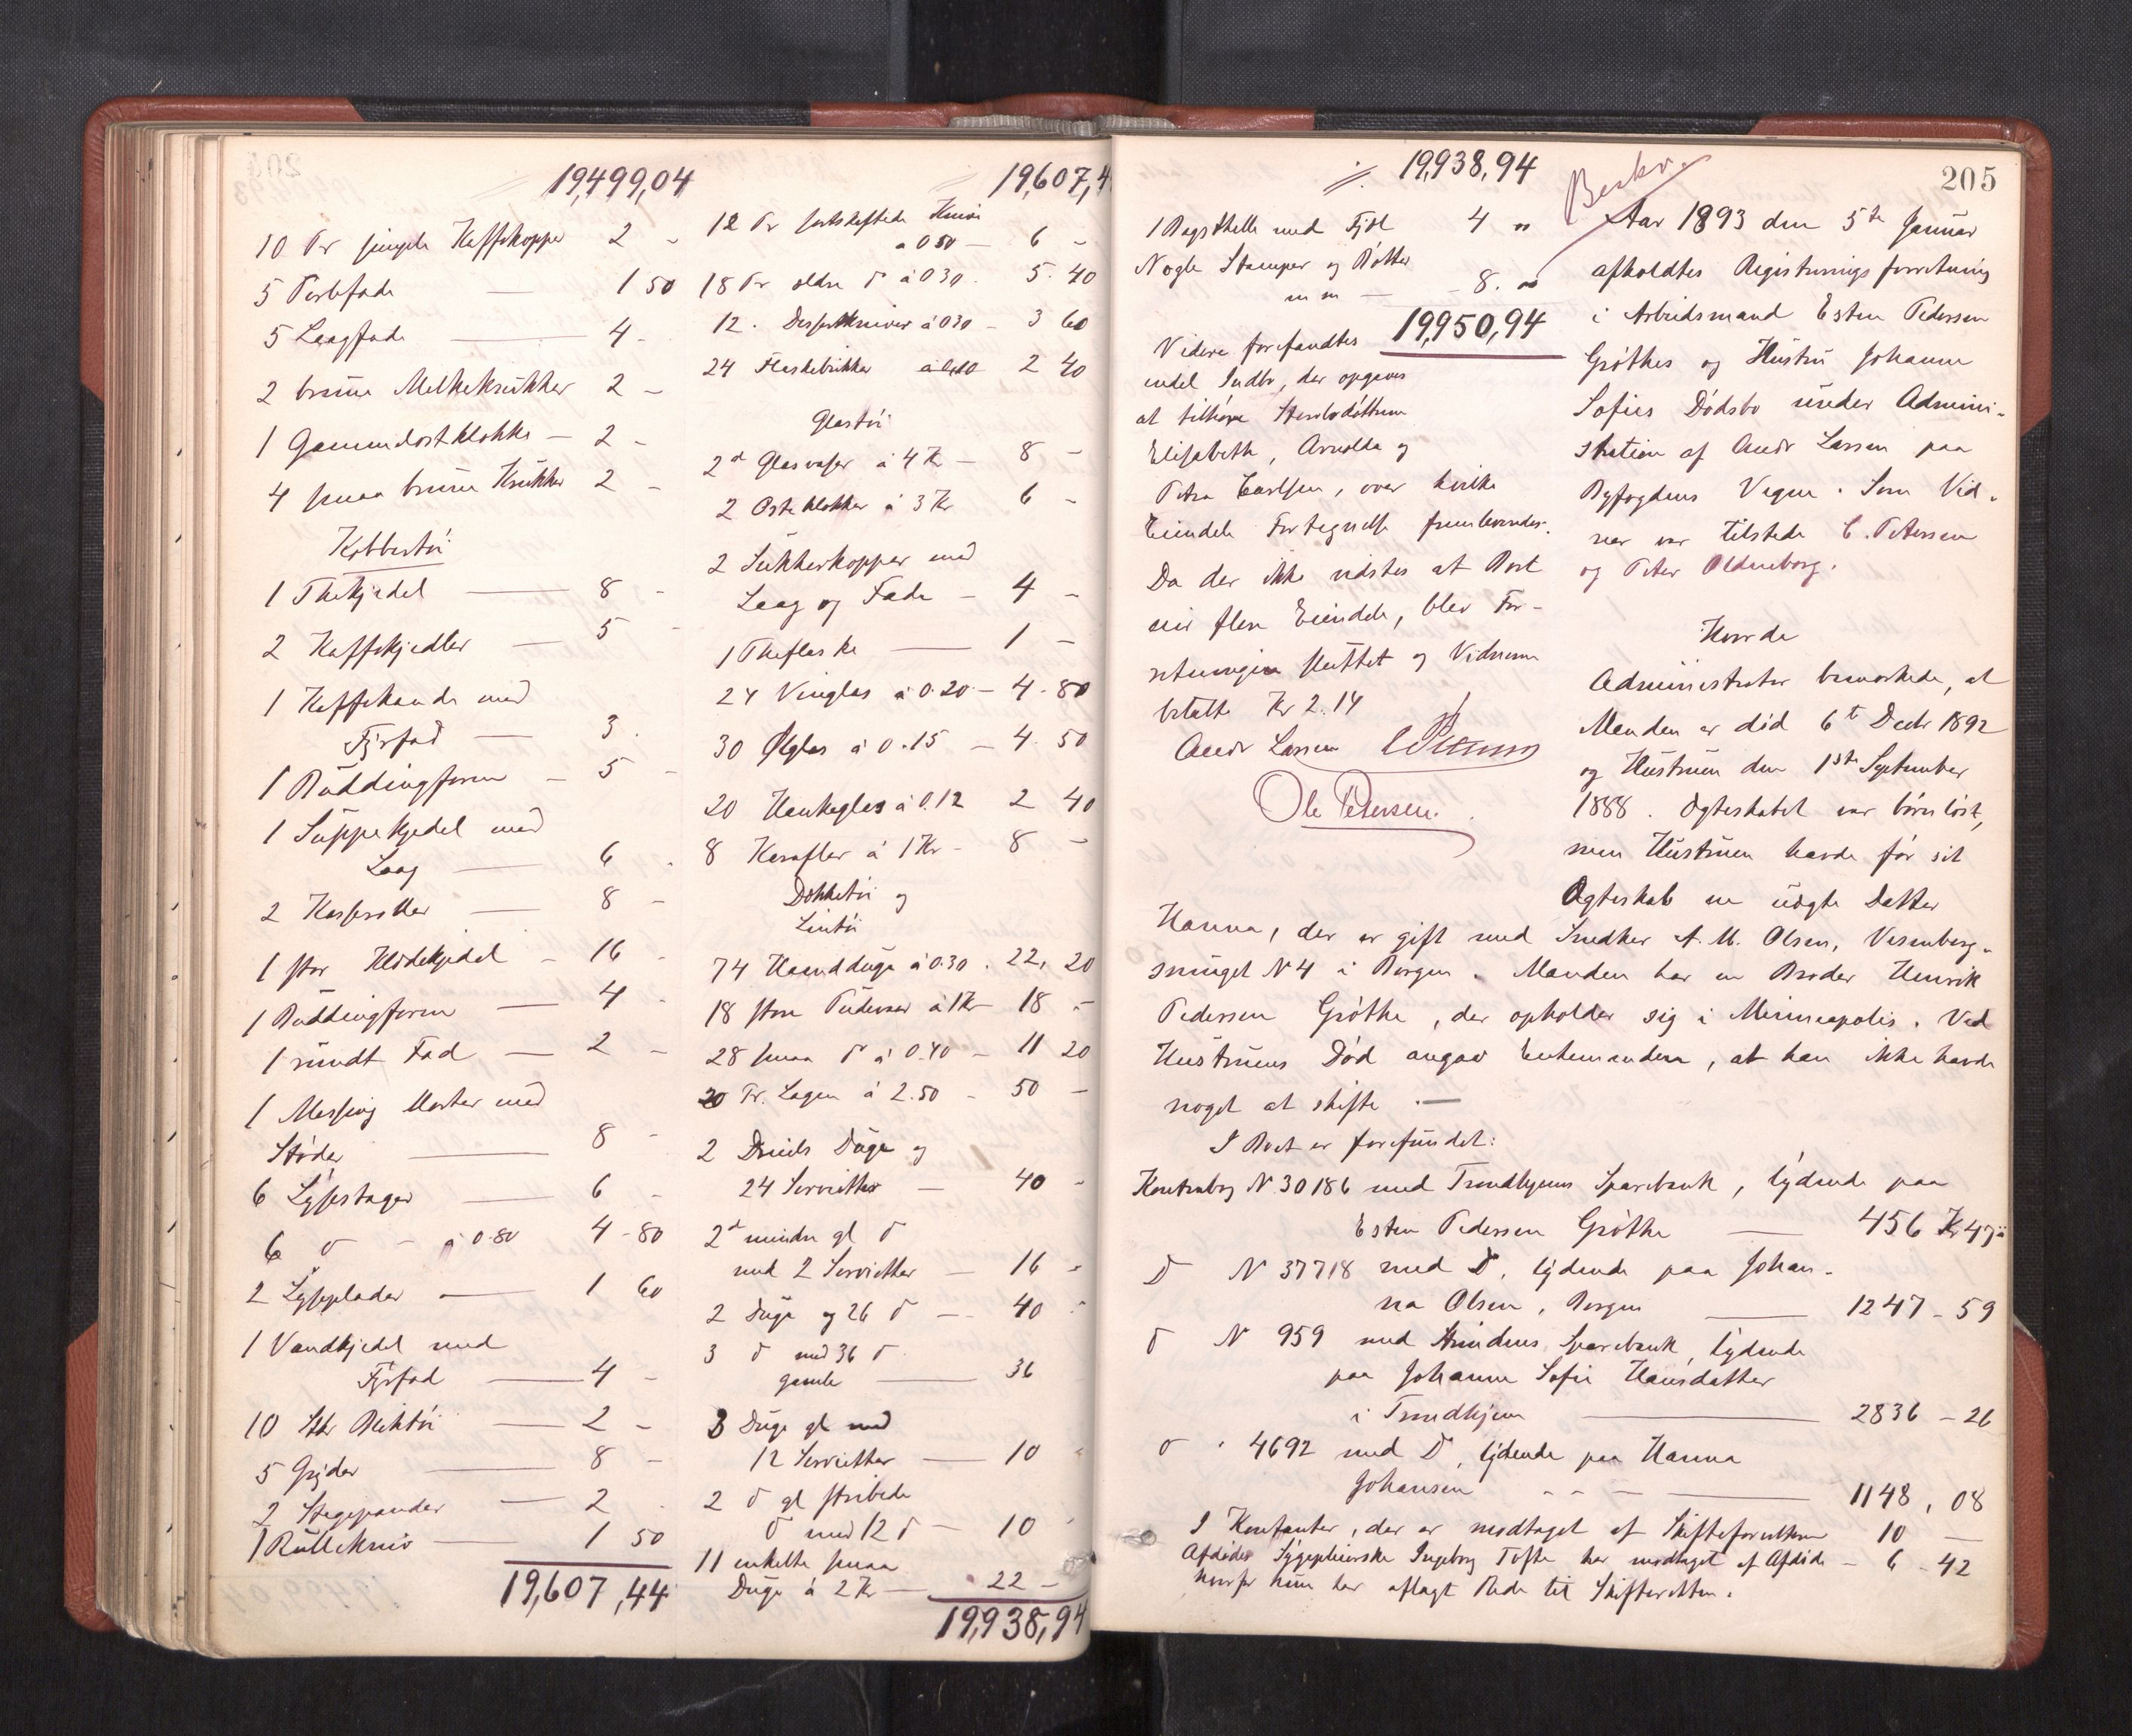 19,499,04
10 Pr simple Kaffekopper 2 -
5 Terbefade — 1 50
5 Laagfade — 4 -
2 brune Melkekrukker 2 -
1 Gammelostklokke — 2 -
4 smaa brune Krukker 2 -
Kobbertöi
1 Thekjedel — 8 -
2 Kaffekjedler — 5 -
1 Kaffekande med
Fyrfad — 3 -
1 Buddingform — 5 -
1 Suppekjedel med
Laag — 6 -
2 Kasseroller — 8 -
1 stor Kedel — 16 -
1 Buddingform — 4 -
1 rundt Fad — 2 -
1 Messing Morter med
Stöder — 8 -
6 Lysestager — 6 -
6 D - à 0.80 4 - 80
2 Lyseplader — 1 60
1 Vandkjedel med
Fyrfad — 4 -
10 Stkr Bliktöi — 2 -
5 Gryder — 8 -
2 Stegepander — 2 -
1 Rullekniv — 1 50
19,607,44
19,607,4
12 Pr sortskaftede Knive
à 0 50 — 6 -
18 Pr ældre D à 0 30 . 5. 40
12 . Dessertkniver à 0 30 — 3 60
24 Flaskebrikker 2 40
Glastöi
2 Glasvaser à 4 Kr — 8 -
2 Osteklokker à 3 Kr 6 -
2 Sukkerkopper med
Laag og Fade — 4 -
1 Theflaske — 1 -
24 Vinglas à 0.20 — 4 - 80
30 Ølglas à 0.15 — 4. 50
20 Hankeglas à 0.12 2 40
8 Karafler à 1 Kr - 8 -
Dækketöi og
Lintöi
74 Haandduge à 0.30 . 22, 20
18 store Pudevar à 1 Kr — 18 -
28 smaa D à 0.40 — 11 20
20 Pr. Lagen à 2.50 - 50 -
2 Dreils Duge og
24 Servietter — 40 -
2 mindre gl D
med 2 Servietter — 16 -
2 Duge og 26 D — 40 -
3 D med 36 D
gamle — 36
3 Duge gl med
12 Servietter — 10 -
2 D gl stribede
D med 12 D — 10 -
11 enkelte smaa
Duge à 2 Kr — 22 -
19,938,94
19,938,94
1 Bagsthelle med Fjöl 4 "
Nogle Stamper og Bötter
m m — - 8. "
19,950,94
Videre forefandtes
endel Indbo, der opgaves
at tilhöre Stervbodöttrene
Elisabeth, Arnolda og
Petra Carlsen, over hvilke
Eiendele Fortegnelse fremlevendes.
Da der ikke vidstes at Boet
eier flere Eiendele, blev For-
retningen sluttet og Vidnerne
betalte Kr 2.14
Andr Larsen
Ole Petersen.
205
Beskr.
Aar 1893 den 5te Januar
afholdtes Registreringsforretning
i Arbeidsmand Esten Pedersen
Gröthes og Hustru Johanne
Sofies Dödsbo under Admini-
stration af Andr Larsen paa
Byfogdens Vegne. Som Vid-
ner var tilstede C. Petersen
og Peter Oldenborg.
Hvorda
Administrator bemærkede, at
Manden er död 6te Decbr 1892
og Hustruen den 1ste September
1888. Ægteskabet var barnlöst,
men Hustruen havde för sit
Ægteskab en uægte Datter
Hanna, der er gift med Snedker A. M. Olsen, Vesenberg-
smuget N 4 i Bergen. Manden har en Broder Henrik
Pedersen Gröthe, der opholder sig i Minneapolis. Ved
Hustruens Död angav Enkemanden, at han ikke havde
noget at skifte. —
I Boet er forefundet:
Kontrabog N 30186 med Trondhjems Sparebank, lydende paa
Esten Pedersen Gröthe — 456 Kr 47 ö
D N 37718 med D, lydende paa Johan-
na Olsen, Bergen — 1247 - 59
D N 959 med Strindens Sparebank, lydende
paa Johanne Sofie Hansdatter
i Trondhjem — 2836 - 26
D " 4692 med D, lydende paa Hanna
Johansen - - - — 1148, 08
I Kontanter, der er modtaget af Skifteforvalteren 10 —
Afdödes Sygepleierske Ingeborg Tofte har modtaget af Afdöde — 6 - 42
hvorfor hun har aflagt Rede til Skifteretten.